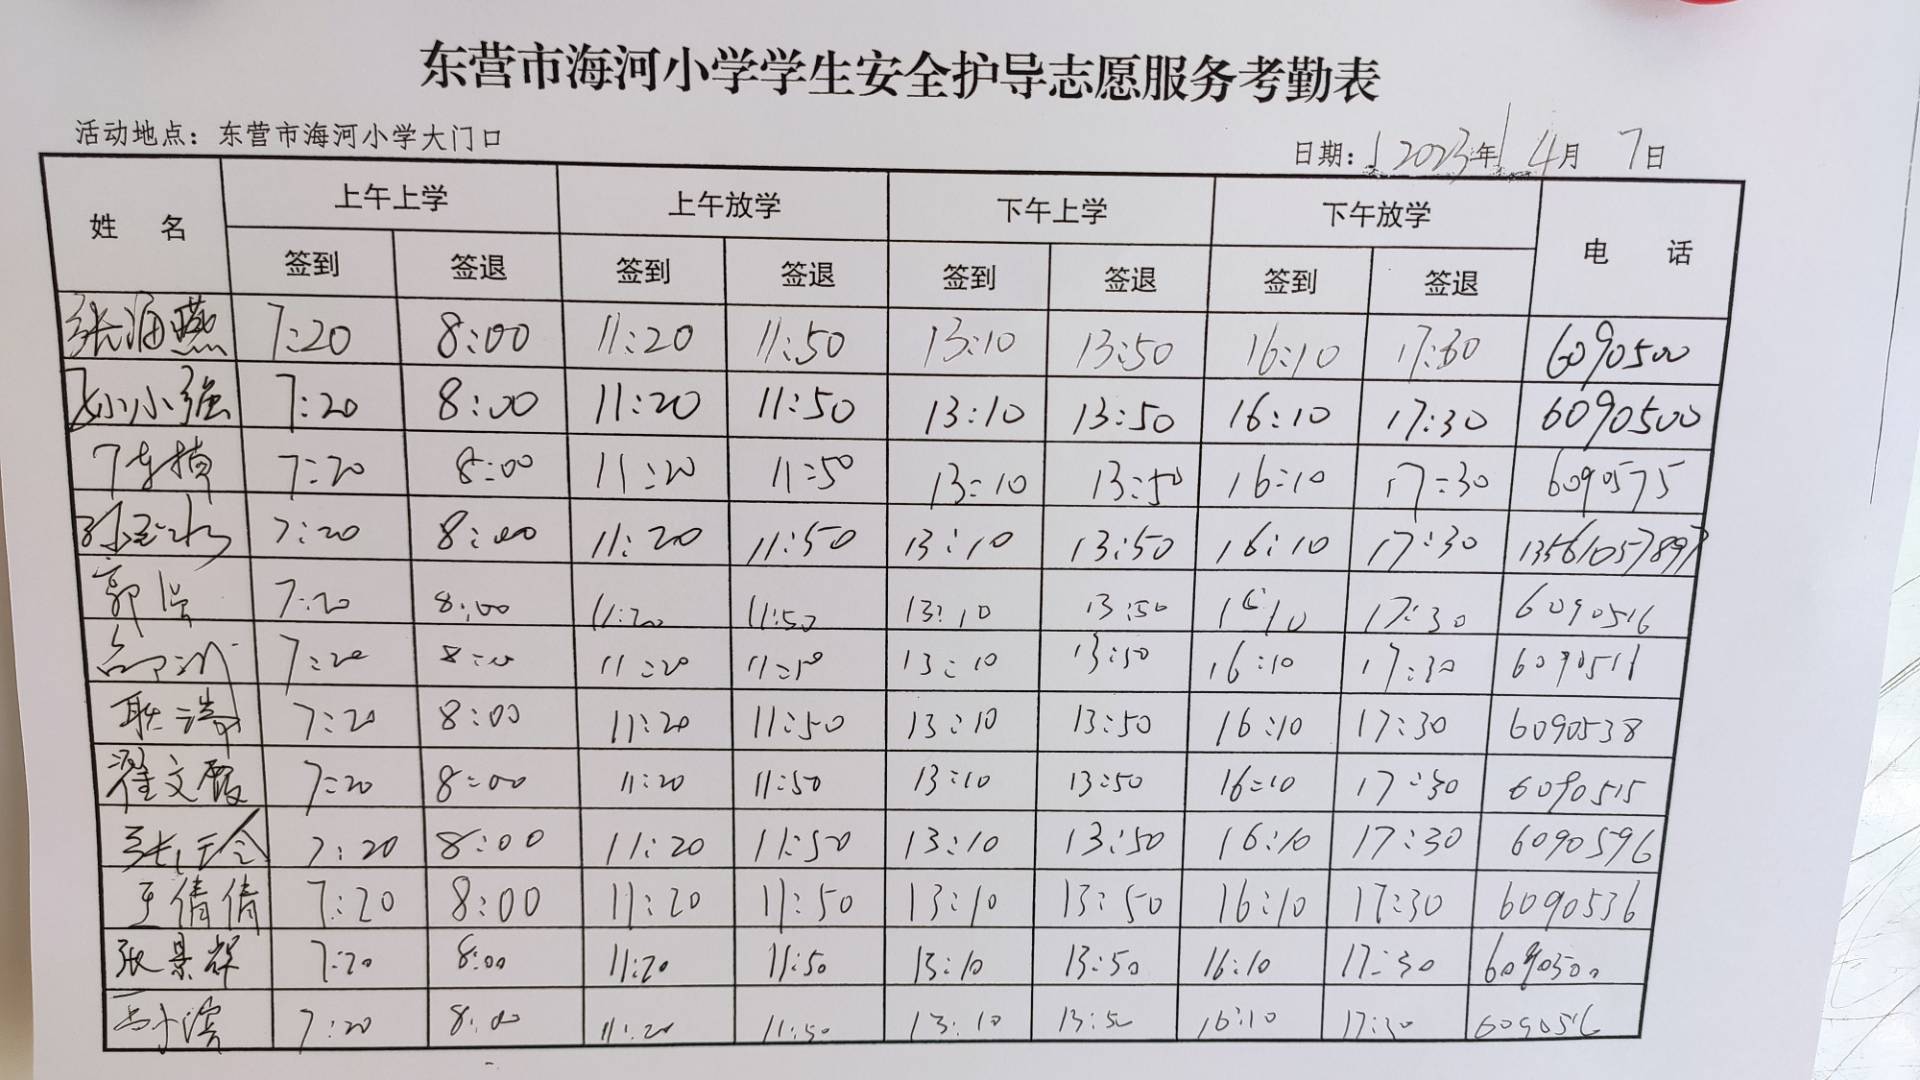 东营市海河小学学生安全护导志愿服务考勤表
活动地点：东营市海河小学大门口
日期： 2023年 4月 7日
姓 名 上午上学 上午放学 下午上学 下午放学 电 话
签到 签退 签到 签退 签到 签退 签到 签退
张海燕 7:20 8:00 11:20 11:50 13:10 13:50 16:10 17:30 6090500
孙小强 7:20 8:00 11:20 11:50 13:10 13:50 16:10 17:30 6090500
7:20 8:00 11:20 11:50 13:10 13:50 16:10 17:30 6090575
7:20 8:00 11:20 11:50 13:10 13:50 16:10 17:30 13561057897
郭 7:20 8:00 11:20 11:50 13:10 13:50 16:10 17:30 6090516
7:20 8:00 11:20 11:50 13:10 13:50 16:10 17:30 6090511
耿 7:20 8:00 11:20 11:50 13:10 13:50 16:10 17:30 6090538
翟文霞 7:20 8:00 11:20 11:50 13:10 13:50 16:10 17:30 6090515
张 7:20 8:00 11:20 11:50 13:10 13:50 16:10 17:30 6090596
王倩倩 7:20 8:00 11:20 11:50 13:10 13:50 16:10 17:30 6090536
张景辉 7:20 8:00 11:20 11:50 13:10 13:50 16:10 17:30 6090500
7:20 8:00 11:20 11:50 13:10 13:50 16:10 17:30 6090516